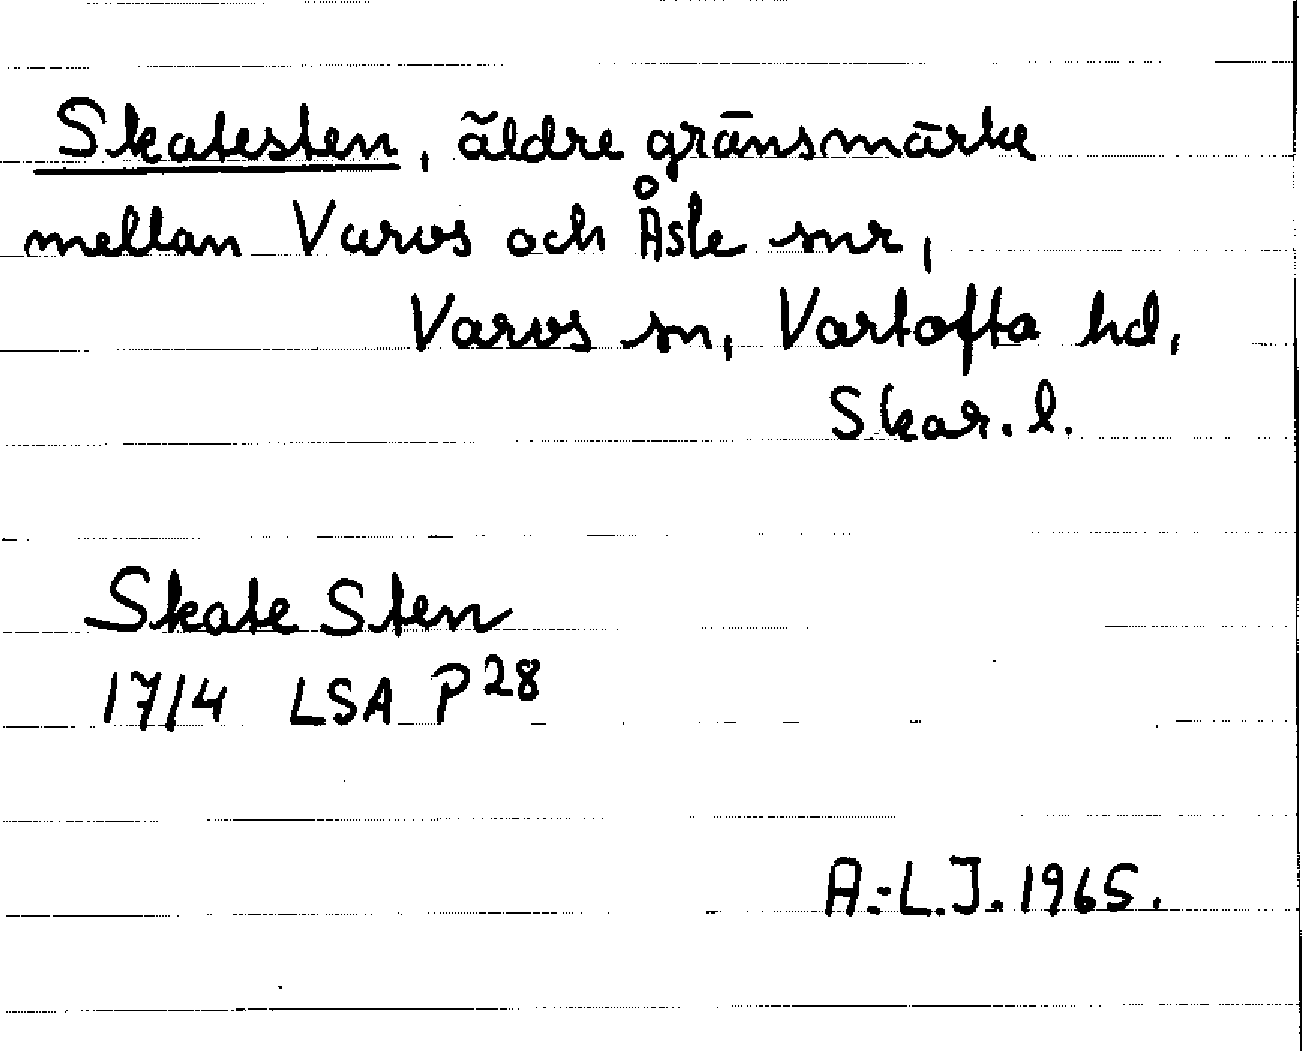 Skatesten, äldre gränsmärke
mellan Varvs och Åsle snr,
Varvs sn, Vartofta hd,
Skar. l.
Skate Sten
1714 LSA P28
A.-L.J. 1965.